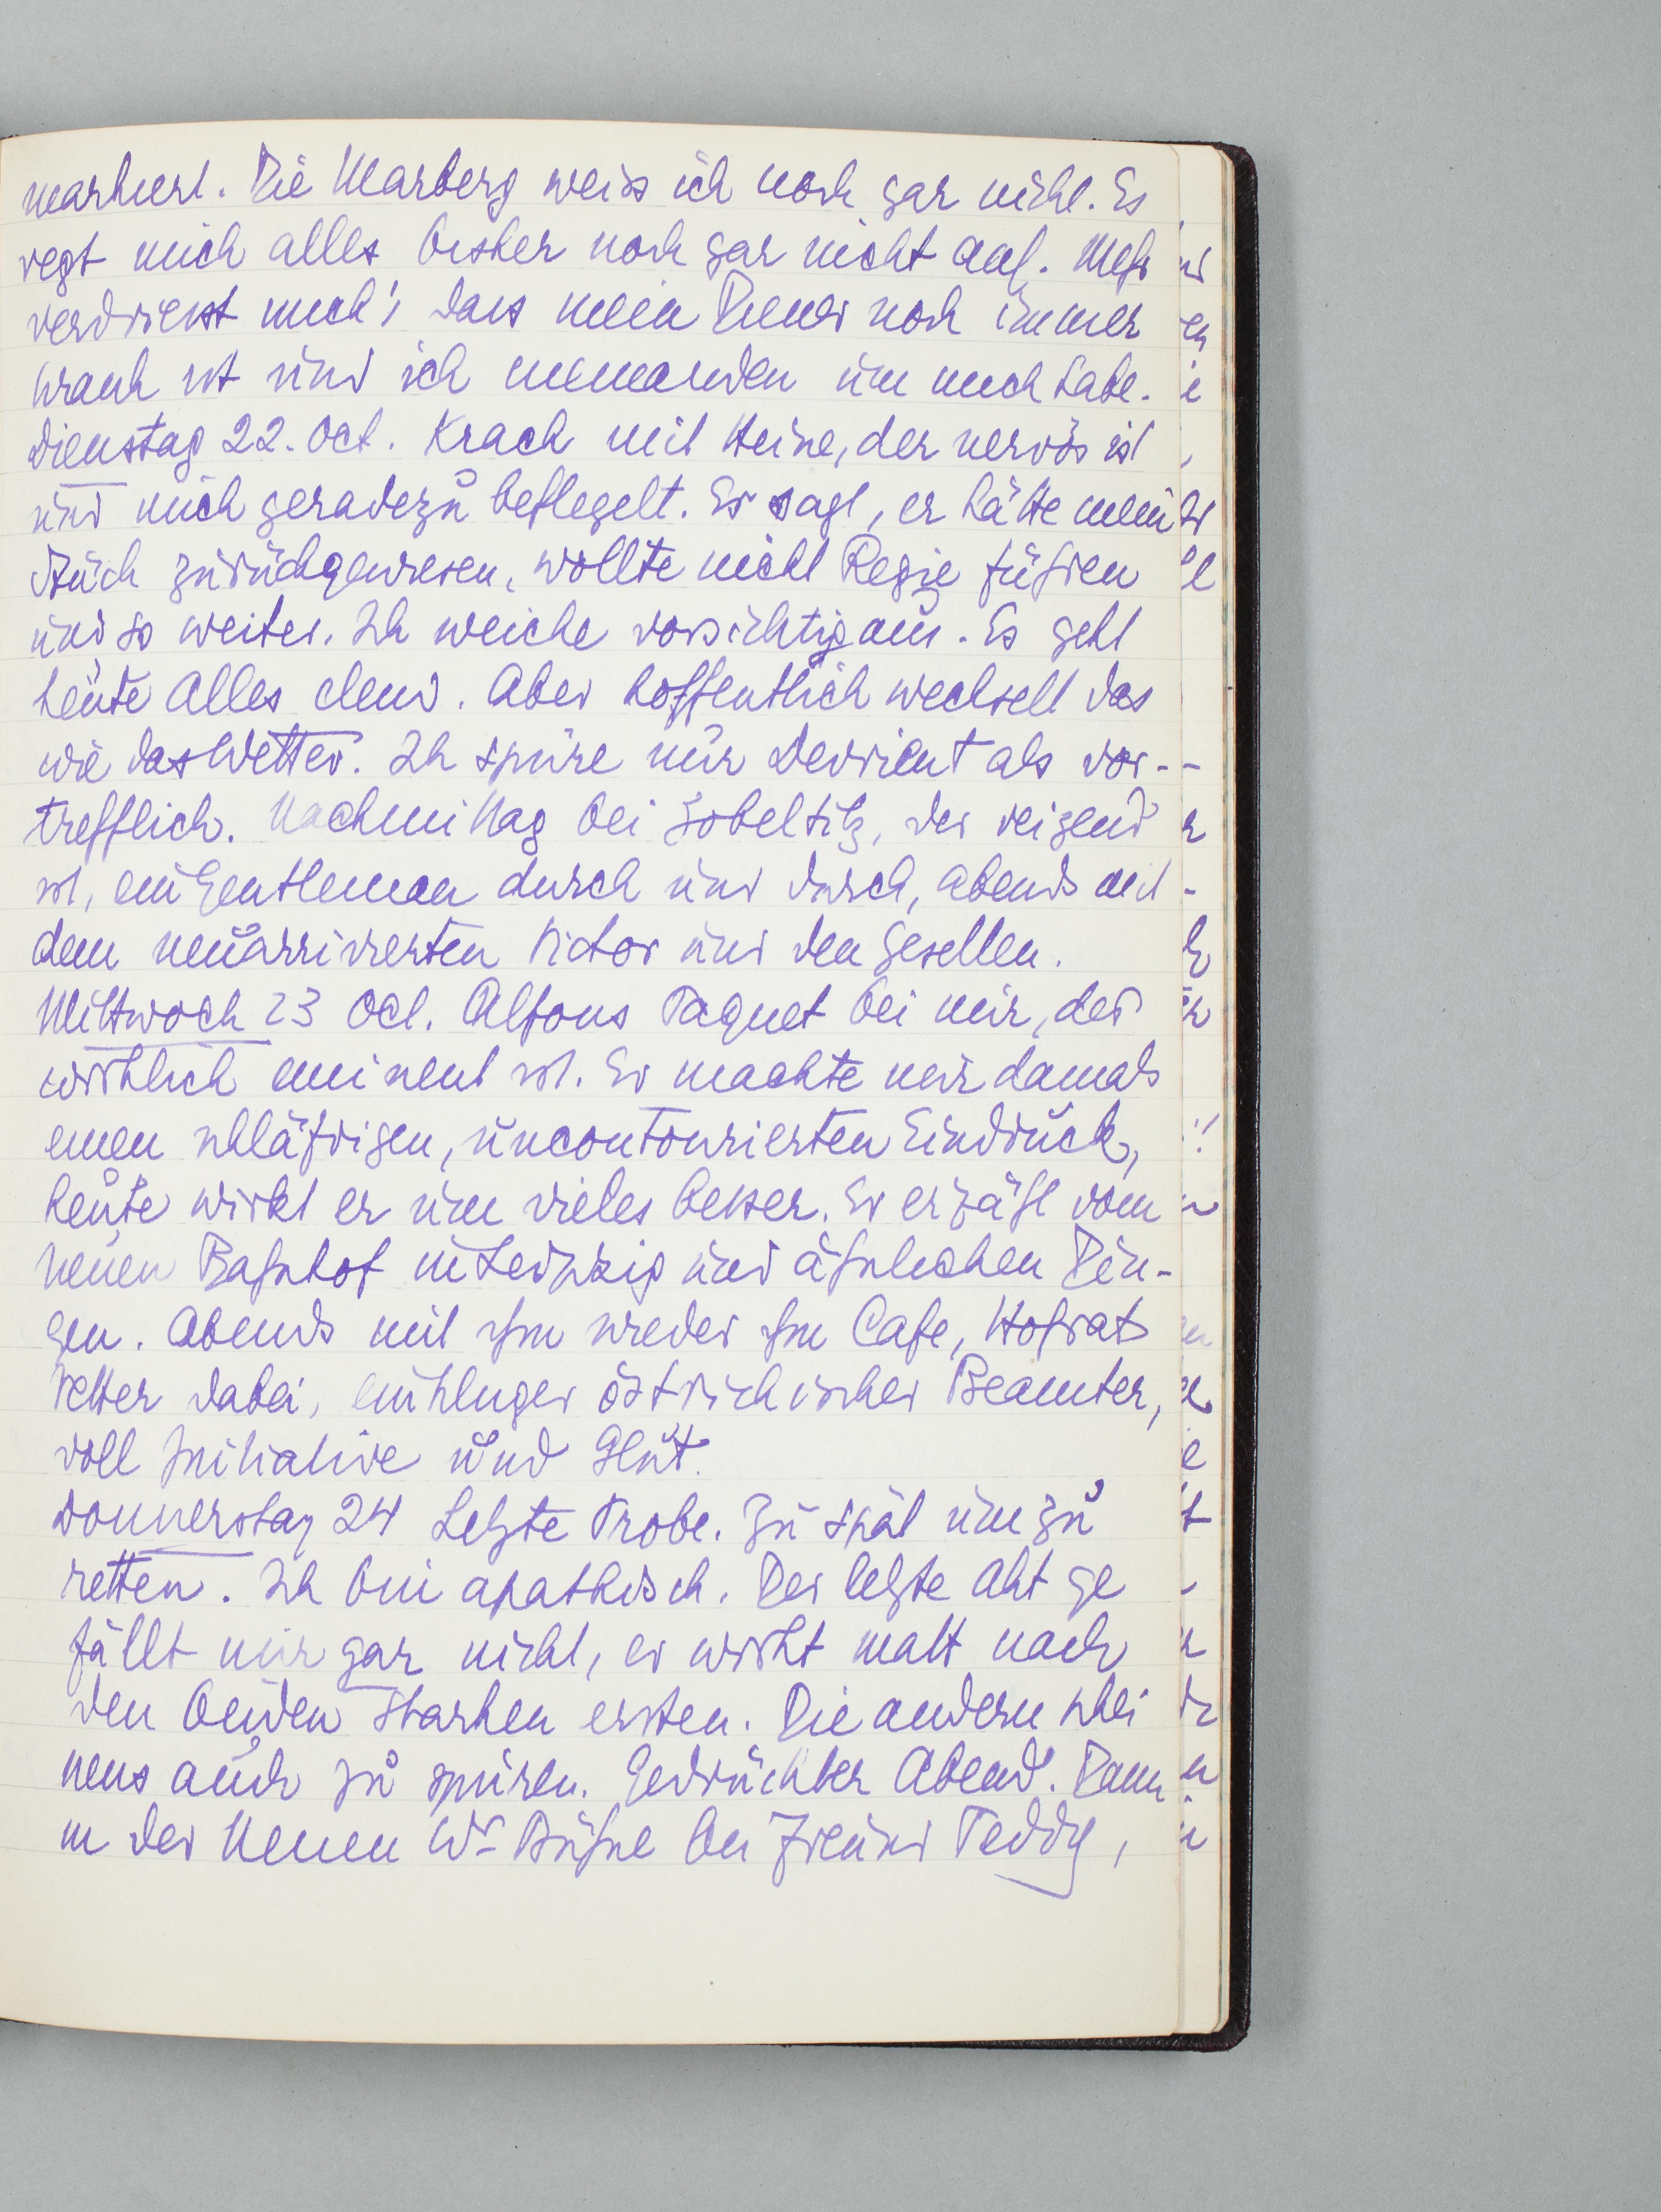 markiert. Die Marberg weiss ich noch gar nicht. Es
regt mich alles bisher noch gar nicht auf. Mehr
verdriesst mich's dass mein Diener noch immer
krank ist und ich niemanden um mich habe.
Dienstag 22. Oct. Krach mit Heine, der nervös ist
und mich geradezu beflegelt. Er sagt, er hätte mein
Stück zurückgewiesen, wollte nicht Regie führen
und so weiter. Ich weiche vorsichtig aus. Es geht
heute Alles elend. Aber hoffentlich wechselt das
wie das Wetter. Ich spüre nur Devrient als vor-
trefflich. Nachmittag bei Zobeltitz, der reizend
ist, ein Gentleman durch und durch, abends mit
dem neuarrivierten Victor und den Gesellen.
Mittwoch 23 Oct. Alfons Paquet bei mir, der
wirklich eminent ist. Er machte mir damals
einen schläfrigen, uncontourierten Eindruck,
heute wirkt er um vieles besser. Er erzählt vom
neuen Bahnhof in Leipzig und ähnlichen Din-
gen. Abends mit ihm wieder im Cafe, Hofrat
Vetter dabei, ein kluger östreichischer Beamter,
voll Initiative und Glut.
Donnerstag 24 Letzte Probe. Zu spät um zu
retten. Ich bin apathisch. Der letzte Akt ge
fällt mir gar nicht, er wirkt matt nach
den beiden starken ersten. Die andern schei
nens auch zu spüren. Gedrückter Abend. Dann
in der Neuen Wr Bühne bei Freund Teddy,